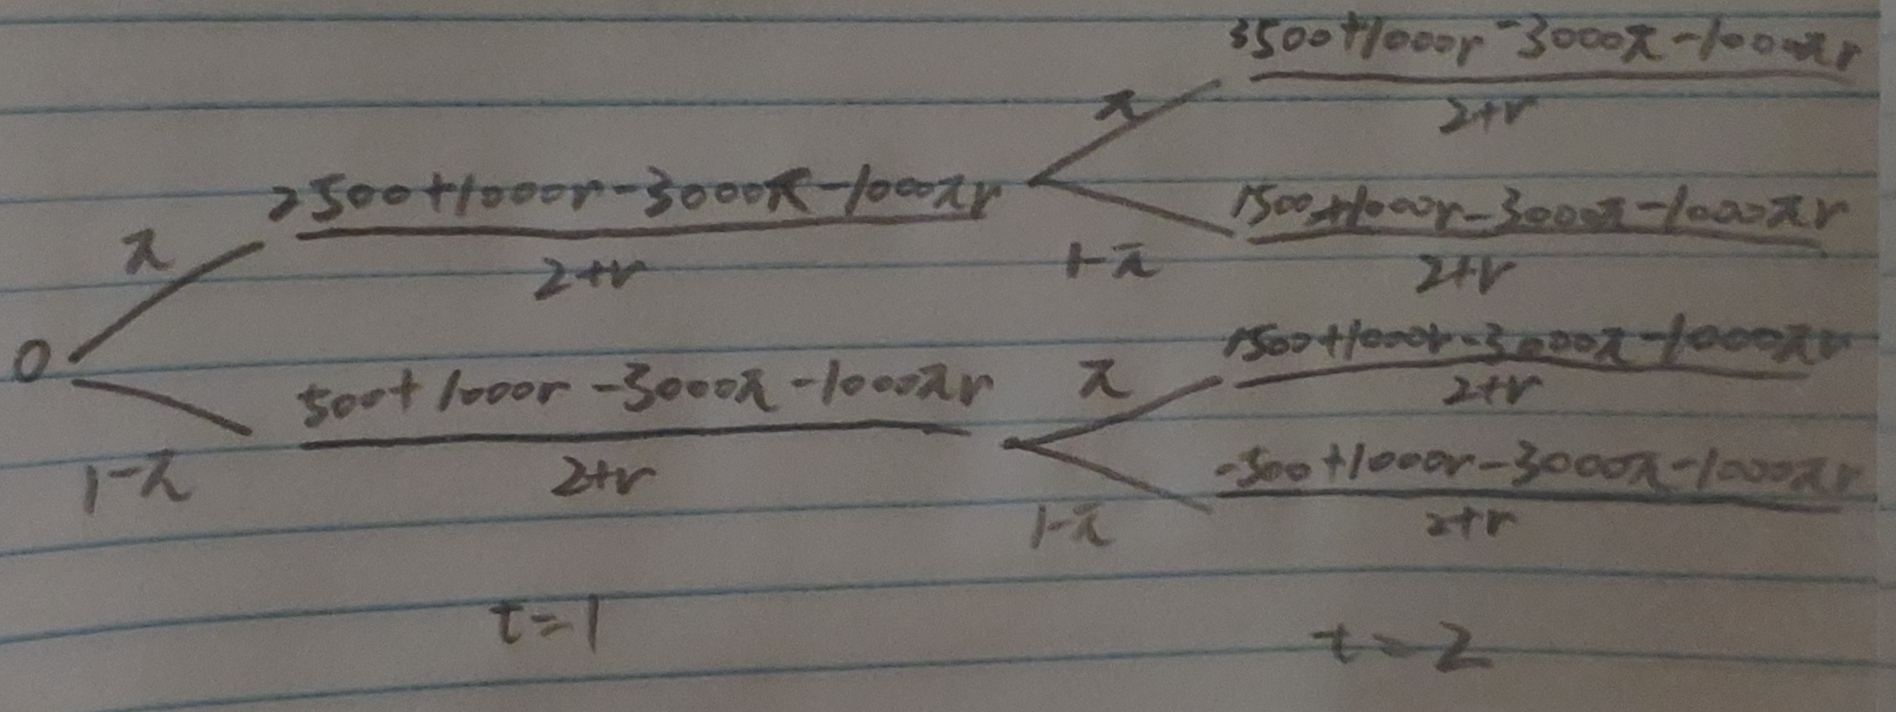 3500+1000r-3000π-1000πr
2+r
π
2500+1000r-3000π-1000πr
2+r
π
1500+1000r-3000π-1000πr
2+r
1-π
0
500+1000r-3000π-1000πr
2+r
1-π
π
1500+1000r-3000π-1000πr
2+r
-500+1000r-3000π-1000πr
2+r
1-π
t=1
t=2